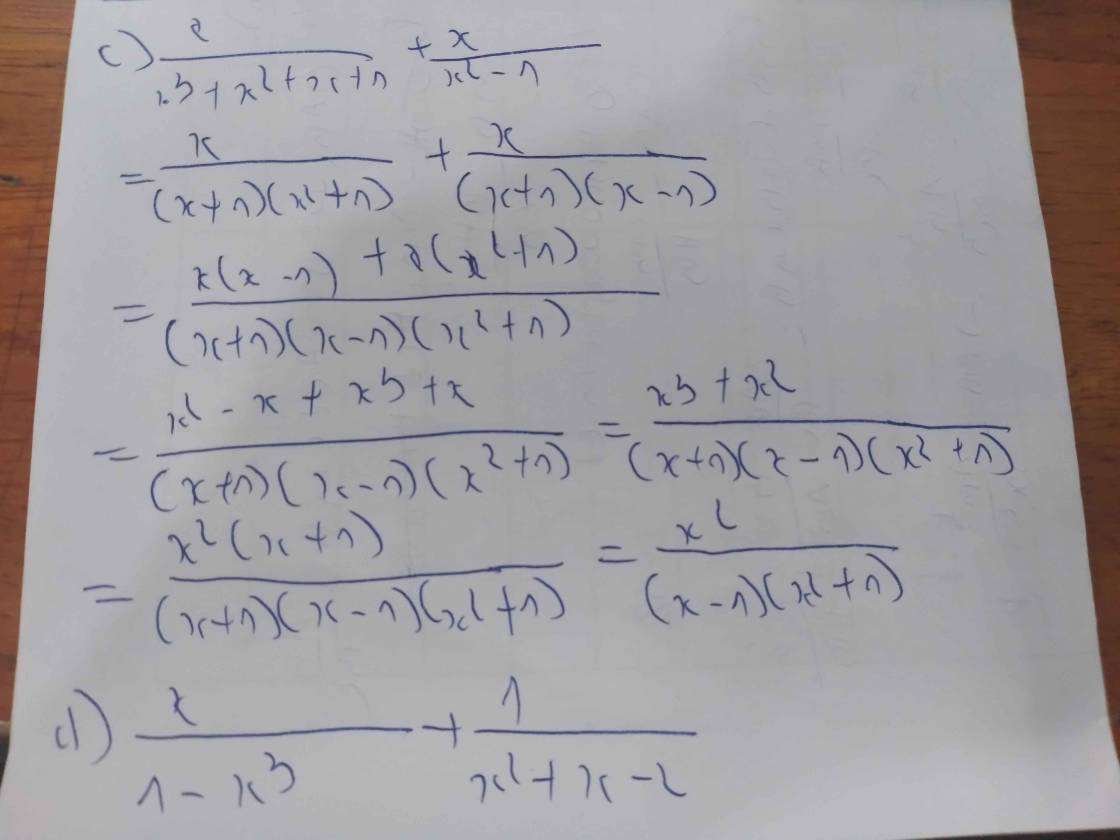 c) x/(x³+x²+x+1) + x/(x²-1)
= x/((x+1)(x²+1)) + x/((x+1)(x-1))
= (x(x-1) + x(x²+1))/((x+1)(x-1)(x²+1))
= (x²-x+x³+x)/((x+1)(x-1)(x²+1)) = (x³+x²)/((x+1)(x-1)(x²+1))
= (x²(x+1))/((x+1)(x-1)(x²+1)) = x²/((x-1)(x²+1))
d) x/(1-x³) + 1/(x²+x-2)